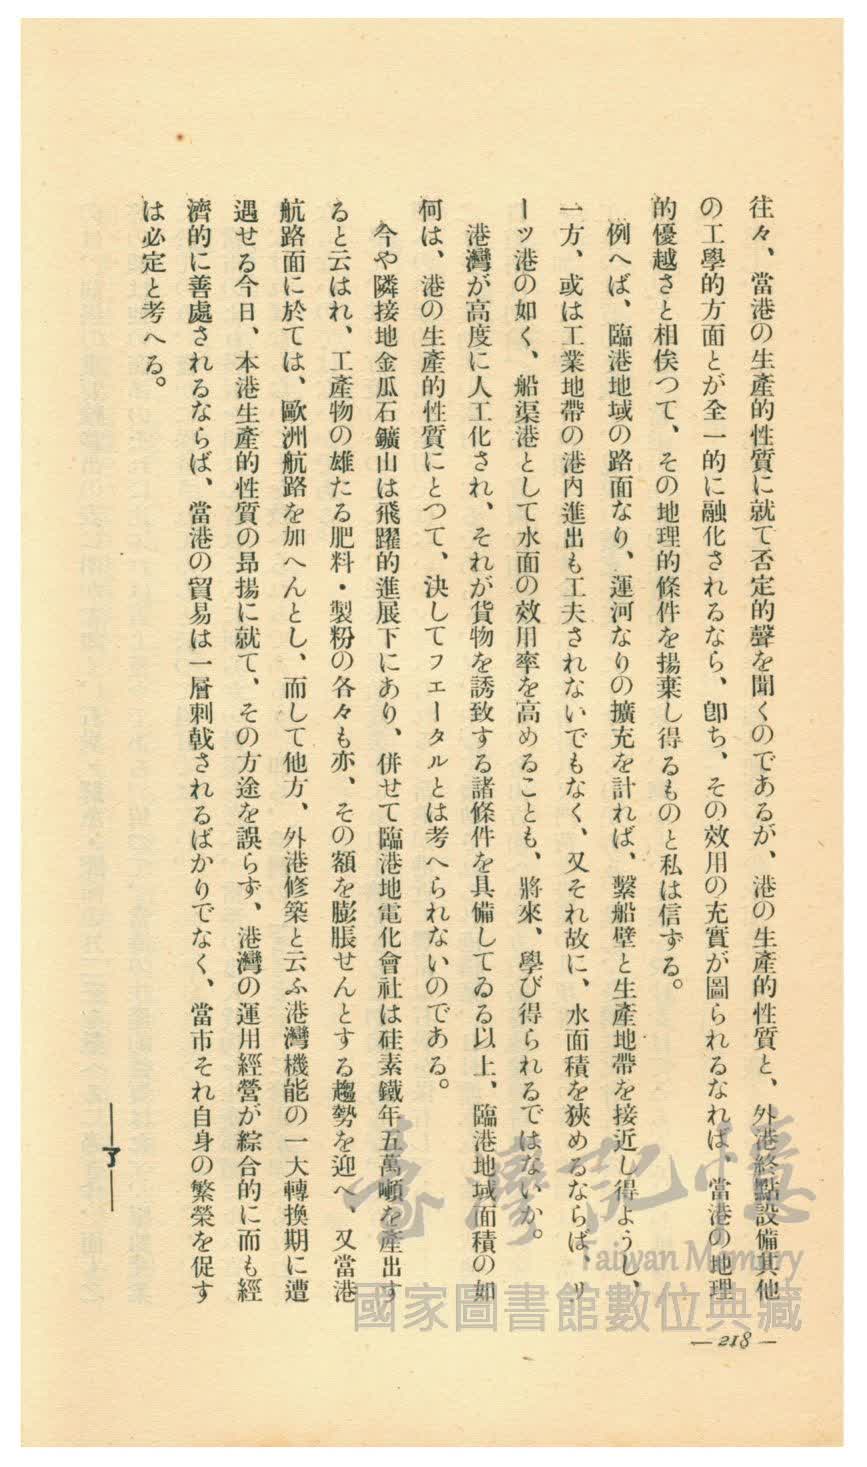 往々、當港の生產的性質に就て否定的聲を聞くのであるが、港の生產的性質と、外港終點設備其他
の工學的方面とが全一的に融化されるなら、卽ち、その效用の充實が圖られるなれば、當港の地理
的優越さと相俟つて、その地理的條件を揚棄し得るものと私は信ずる。
例へば、臨港地域の路面なり、運河なりの擴充を計れば、繫船壁と生產地帶を接近し得ようし、
一方、或は工業地帶の港内進出も工夫されないでもなく、又それ故に、水面積を狹めるならば、リ
ーツ港の如く、船渠港として水面の效用率を高めることも、將來、學び得られるではないか。
港灣が高度に人工化され、それが貨物を誘致する諸條件を具備してゐる以上、臨港地域面積の如
何は、港の生產的性質にとつて、決してフエータルとは考へられないのである。
今や隣接地金瓜石鑛山は飛躍的進展下にあり、併せて臨港地電化會社は硅素鐵年五萬噸を產出す
ると云はれ、工產物の雄たる肥料・製粉の各々も亦、その額を膨脹せんとする趨勢を迎へ、又當港
航路面に於ては、歐洲航路を加へんとし、而して他方、外港修築と云ふ港灣機能の一大轉換期に遭
遇せる今日、本港生產的性質の昂揚に就て、その方途を誤らず、港灣の運用經營が綜合的に而も經
濟的に善處されるならば、當港の貿易は一層刺戟されるばかりでなく、當市それ自身の繁榮を促す
は必定と考へる。
——了——
— 218 —
臺灣記憶
Taiwan Memory
國家圖書館數位典藏